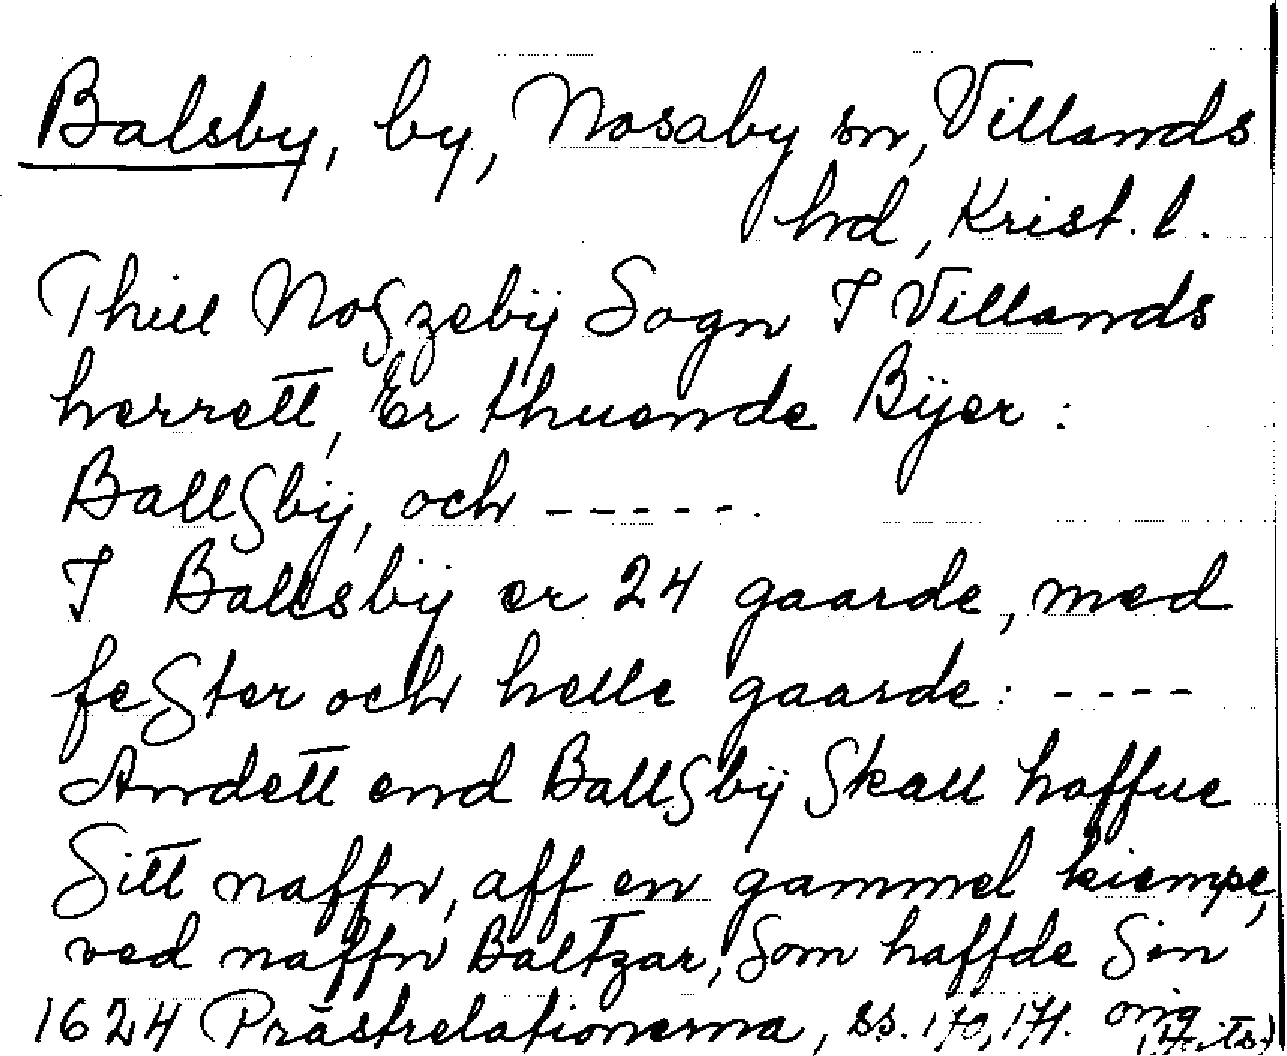 Balsby, by, Nosaby sn, Villands
hd, Krist. l.
Thill Noszebÿ Sogn I Villands
herrett, Er thuende Bÿer :
Ballsbÿ, och ------.
I Ballsbÿ er 24 gaarde, med
fester och helle gaarde: ----
Andett end Ballsbÿ Skall haffue
Sitt naffn, aff en gammel kiempe,
ved naffn Baltzar, Som haffde Sin
1624 Prästrelationerna, ss. 170, 171. orig.